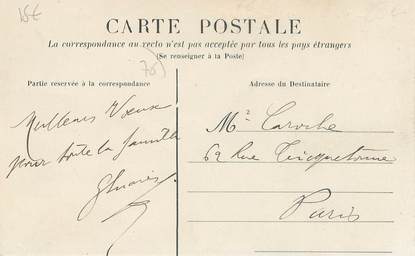 15€
CARTE POSTALE
La correspondance au recto n'est pas acceptée par tous les pays étrangers
(Se renseigner à la Poste)
75)
Partie reservée à la correspondance
Adresse du Destinataire
Meilleurs Voeux
pour toute la famille
Mr Laroche
62 Rue Tiquetonne
Paris